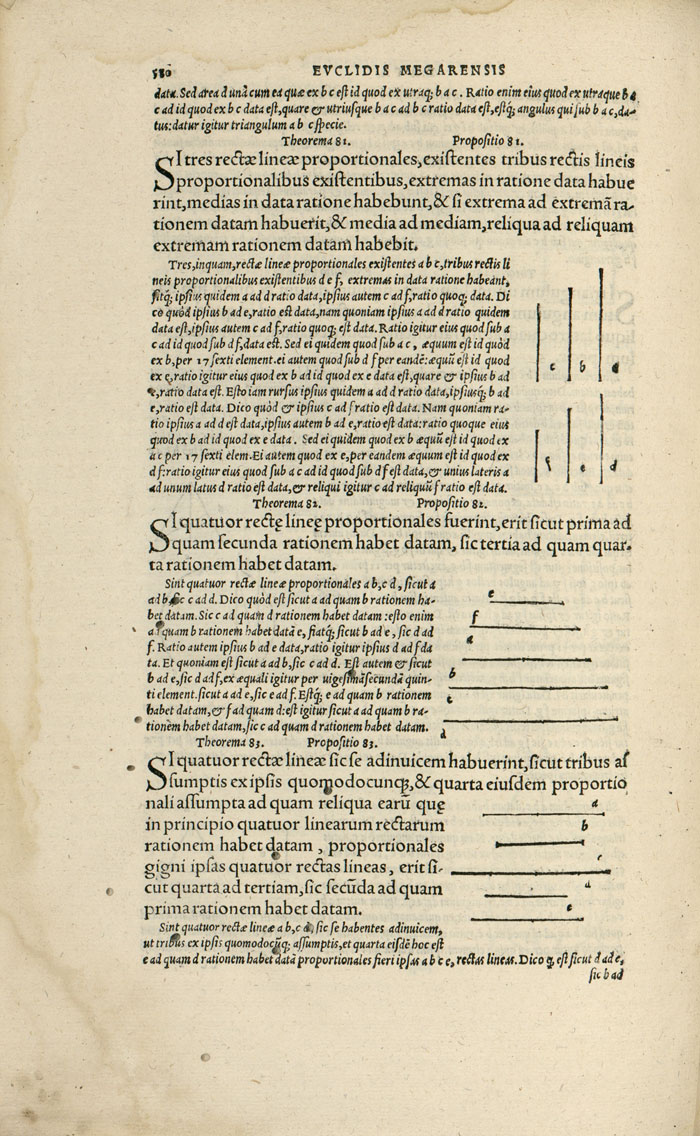 580 EVCLIDIS MEGARENSIS
data. Sed area d unà cum ea quæ ex b c est id quod ex utraq; b a c. Ratio enim eius quod ex utraque b a
c ad id quod ex b c data est, quare & utriusque b a c ad b c ratio data est, estq; angulus qui sub b a c, da-
tus: datur igitur triangulum a b c specie.
Theorema 81. Propositio 81.
SI tres rectæ lineæ proportionales, existentes tribus rectis lineis
proportionalibus existentibus, extremas in ratione data habue
rint, medias in data ratione habebunt, & si extrema ad extremā ra-
tionem datam habuerit, & media ad mediam, reliqua ad reliquam
extremam rationem datam habebit.
Tres, inquam, rectæ lineæ proportionales existentes a b c, tribus rectis li
neis proportionalibus existentibus d e f, extremas in data ratione habeant,
sitq; ipsius quidem a ad d ratio data, ipsius autem c ad f, ratio quoq; data. Di
co quòd ipsius b ad e, ratio est data, nam quoniam ipsius a ad d ratio quidem
data est, ipsius autem c ad f, ratio quoq; est data. Ratio igitur eius quod sub a
c ad id quod sub d f, data est. Sed ei quidem quod sub a c, æquum est id quòd
ex b, per 17 sexti element. ei autem quod sub d f per eandē: æquū est id quod
ex e, ratio igitur eius quod ex b ad id quod ex e data est, quare & ipsius b ad
e, ratio data est. Esto iam rursus ipsius quidem a ad d ratio data, ipsiusq; b ad
e, ratio est data. Dico quòd & ipsius c ad f ratio est data. Nam quoniam ra-
tio ipsius a ad d est data, ipsius autem b ad e, ratio est data: ratio quoque eius
quod ex b ad id quod ex e data. Sed ei quidem quod ex b æquū est id quod ex
a c per 17 sexti elem. Ei autem quod ex e, per eandem æquum est id quod ex
d f: ratio igitur eius quod sub a c ad id quod sub d f est data, & unius lateris a
ad unum latus d ratio est data, & reliqui igitur c ad reliquū f ratio est data.
c b a
f e d
Theorema 82. Propositio 82.
SI quatuor rectę lineę proportionales fuerint, erit sicut prima ad
quam secunda rationem habet datam, sic tertia ad quam quar-
ta rationem habet datam.
Sint quatuor rectæ lineæ proportionales a b, c d, sicut a
ad b, sic c ad d. Dico quòd est sicut a ad quam b rationem ha-
bet datam. Sic c ad quam d rationem habet datam: esto enim
a quam b rationem habet datā e, fiatq; sicut b ad e, sic d ad
f. Ratio autem ipsius b ad e data, ratio igitur ipsius d ad f da
ta. Et quoniam est sicut a ad b, sic c ad d. Est autem & sicut
b ad e, sic d ad f, ex æquali igitur per uigesimāsecundā quin-
ti element. sicut a ad e, sic e ad f. Estq; e ad quam b rationem
habet datam, & f ad quam d: est igitur sicut a ad quam b ra-
tionem habet datam, sic c ad quam d rationem habet datam.
e
f
a
b
c
d
Theorema 83. Propositio 83.
SI quatuor rectæ lineæ sic se adinuicem habuerint, sicut tribus as
sumptis ex ipsis quomodocunq;, & quarta eiusdem proportio
nali assumpta ad quam reliqua earū quę
in principio quatuor linearum rectarum
rationem habet datam, proportionales
gigni ipsas quatuor rectas lineas, erit si-
cut quarta ad tertiam, sic secūda ad quam
prima rationem habet datam.
a
b
c
d
e
Sint quatuor rectæ lineæ a b, c d, sic se habentes adinuicem,
ut tribus ex ipsis quomodocūq; assumptis, et quarta eisdē hoc est
e ad quam d rationem habet datā proportionales fieri ipsas a b c e, rectas lineas. Dico q, est sicut d ad e,
sic b ad